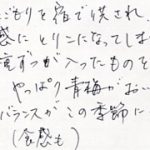 ごもりを宿で供され、
感にとりこになってしま
種ずつが入ったものを
やっぱり青梅がおい
バランスがこの季節に
(食感も)